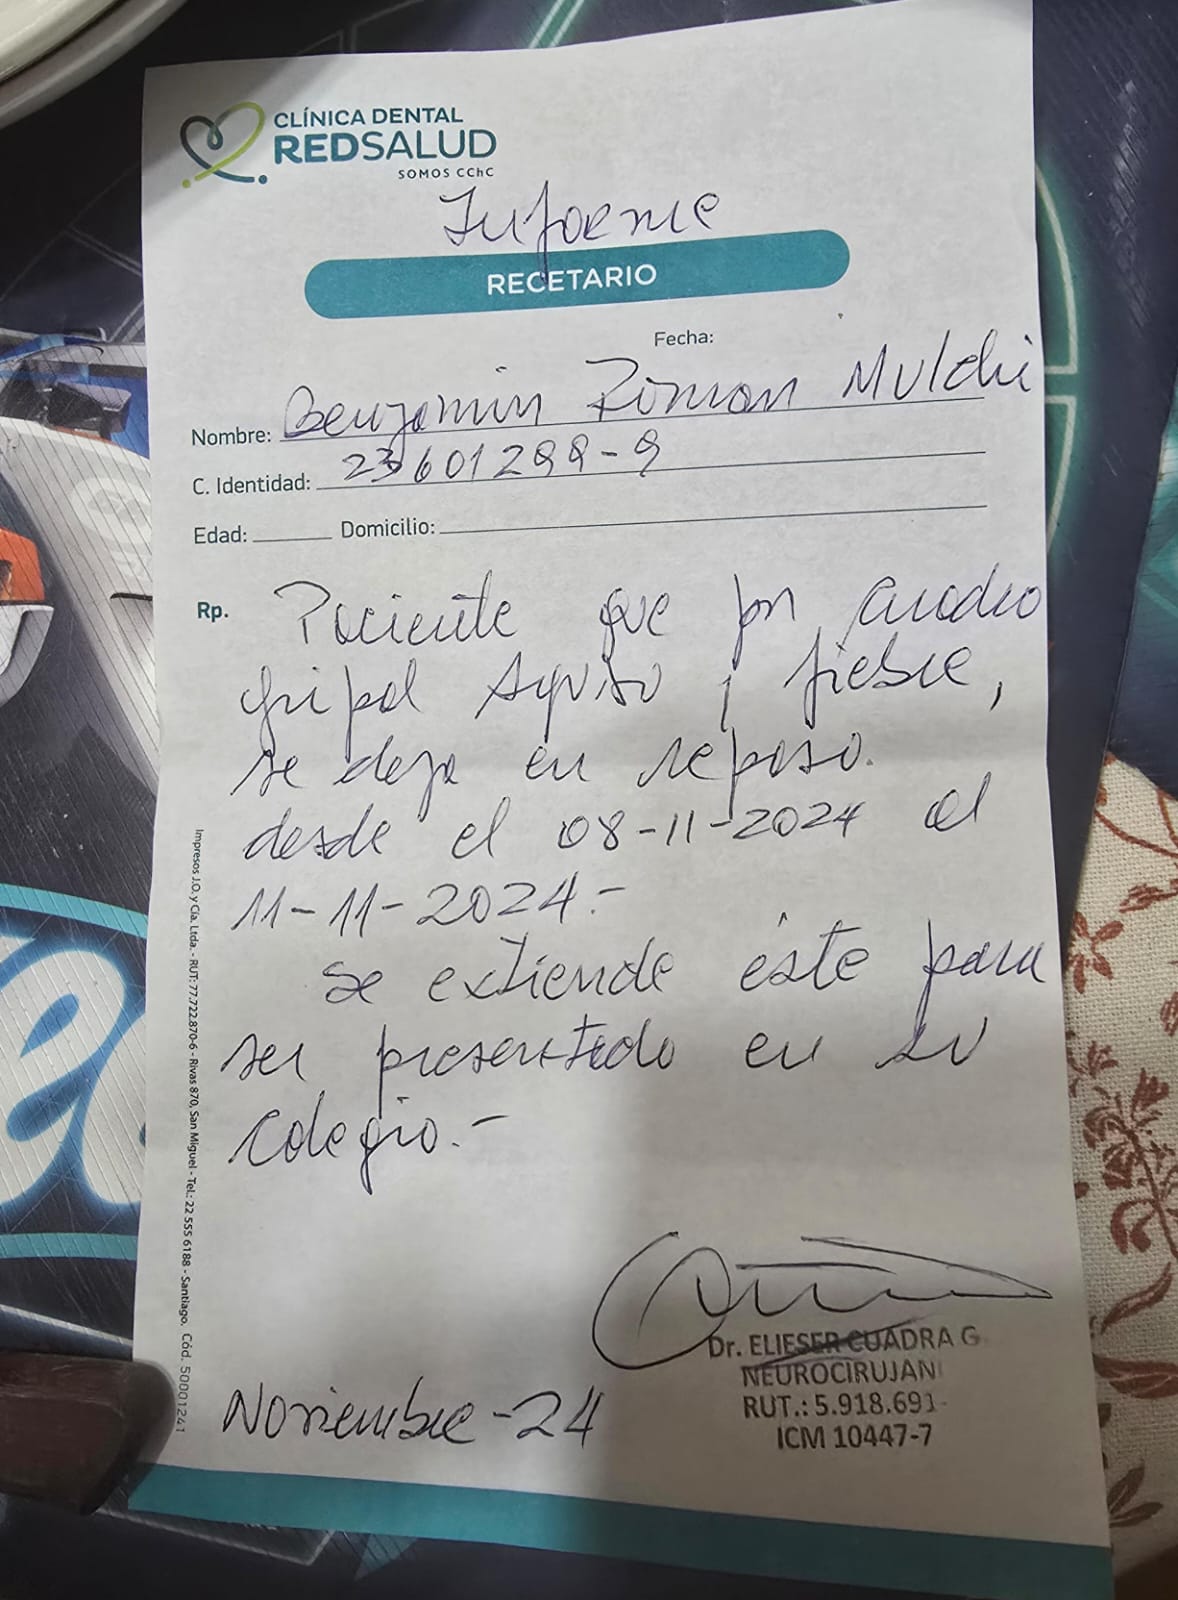 CLÍNICA DENTAL
REDSALUD
SOMOS CChC
Informe
RECETARIO
Fecha:
Nombre: Benjamin Roman Mulchi
C. Identidad: 23601299-9
Edad: Domicilio:
Rp. Paciente que por cuadro
gripal Agudo y fiebre,
se deja en reposo.
desde el 08-11-2024 al
11-11-2024.-
Se extiende éste para
ser presentado en su
colegio.-
Dr. ELIESER CUADRA G
NEUROCIRUJAN
RUT.: 5.918.691-
ICM 10447-7
Noviembre-24
Impresos J.O. y Cía. Ltda. - RUT: 77.722.870-6 - Rivas 870, San Miguel - Tel.: 22 555 6188 - Santiago. Cód. 50001241